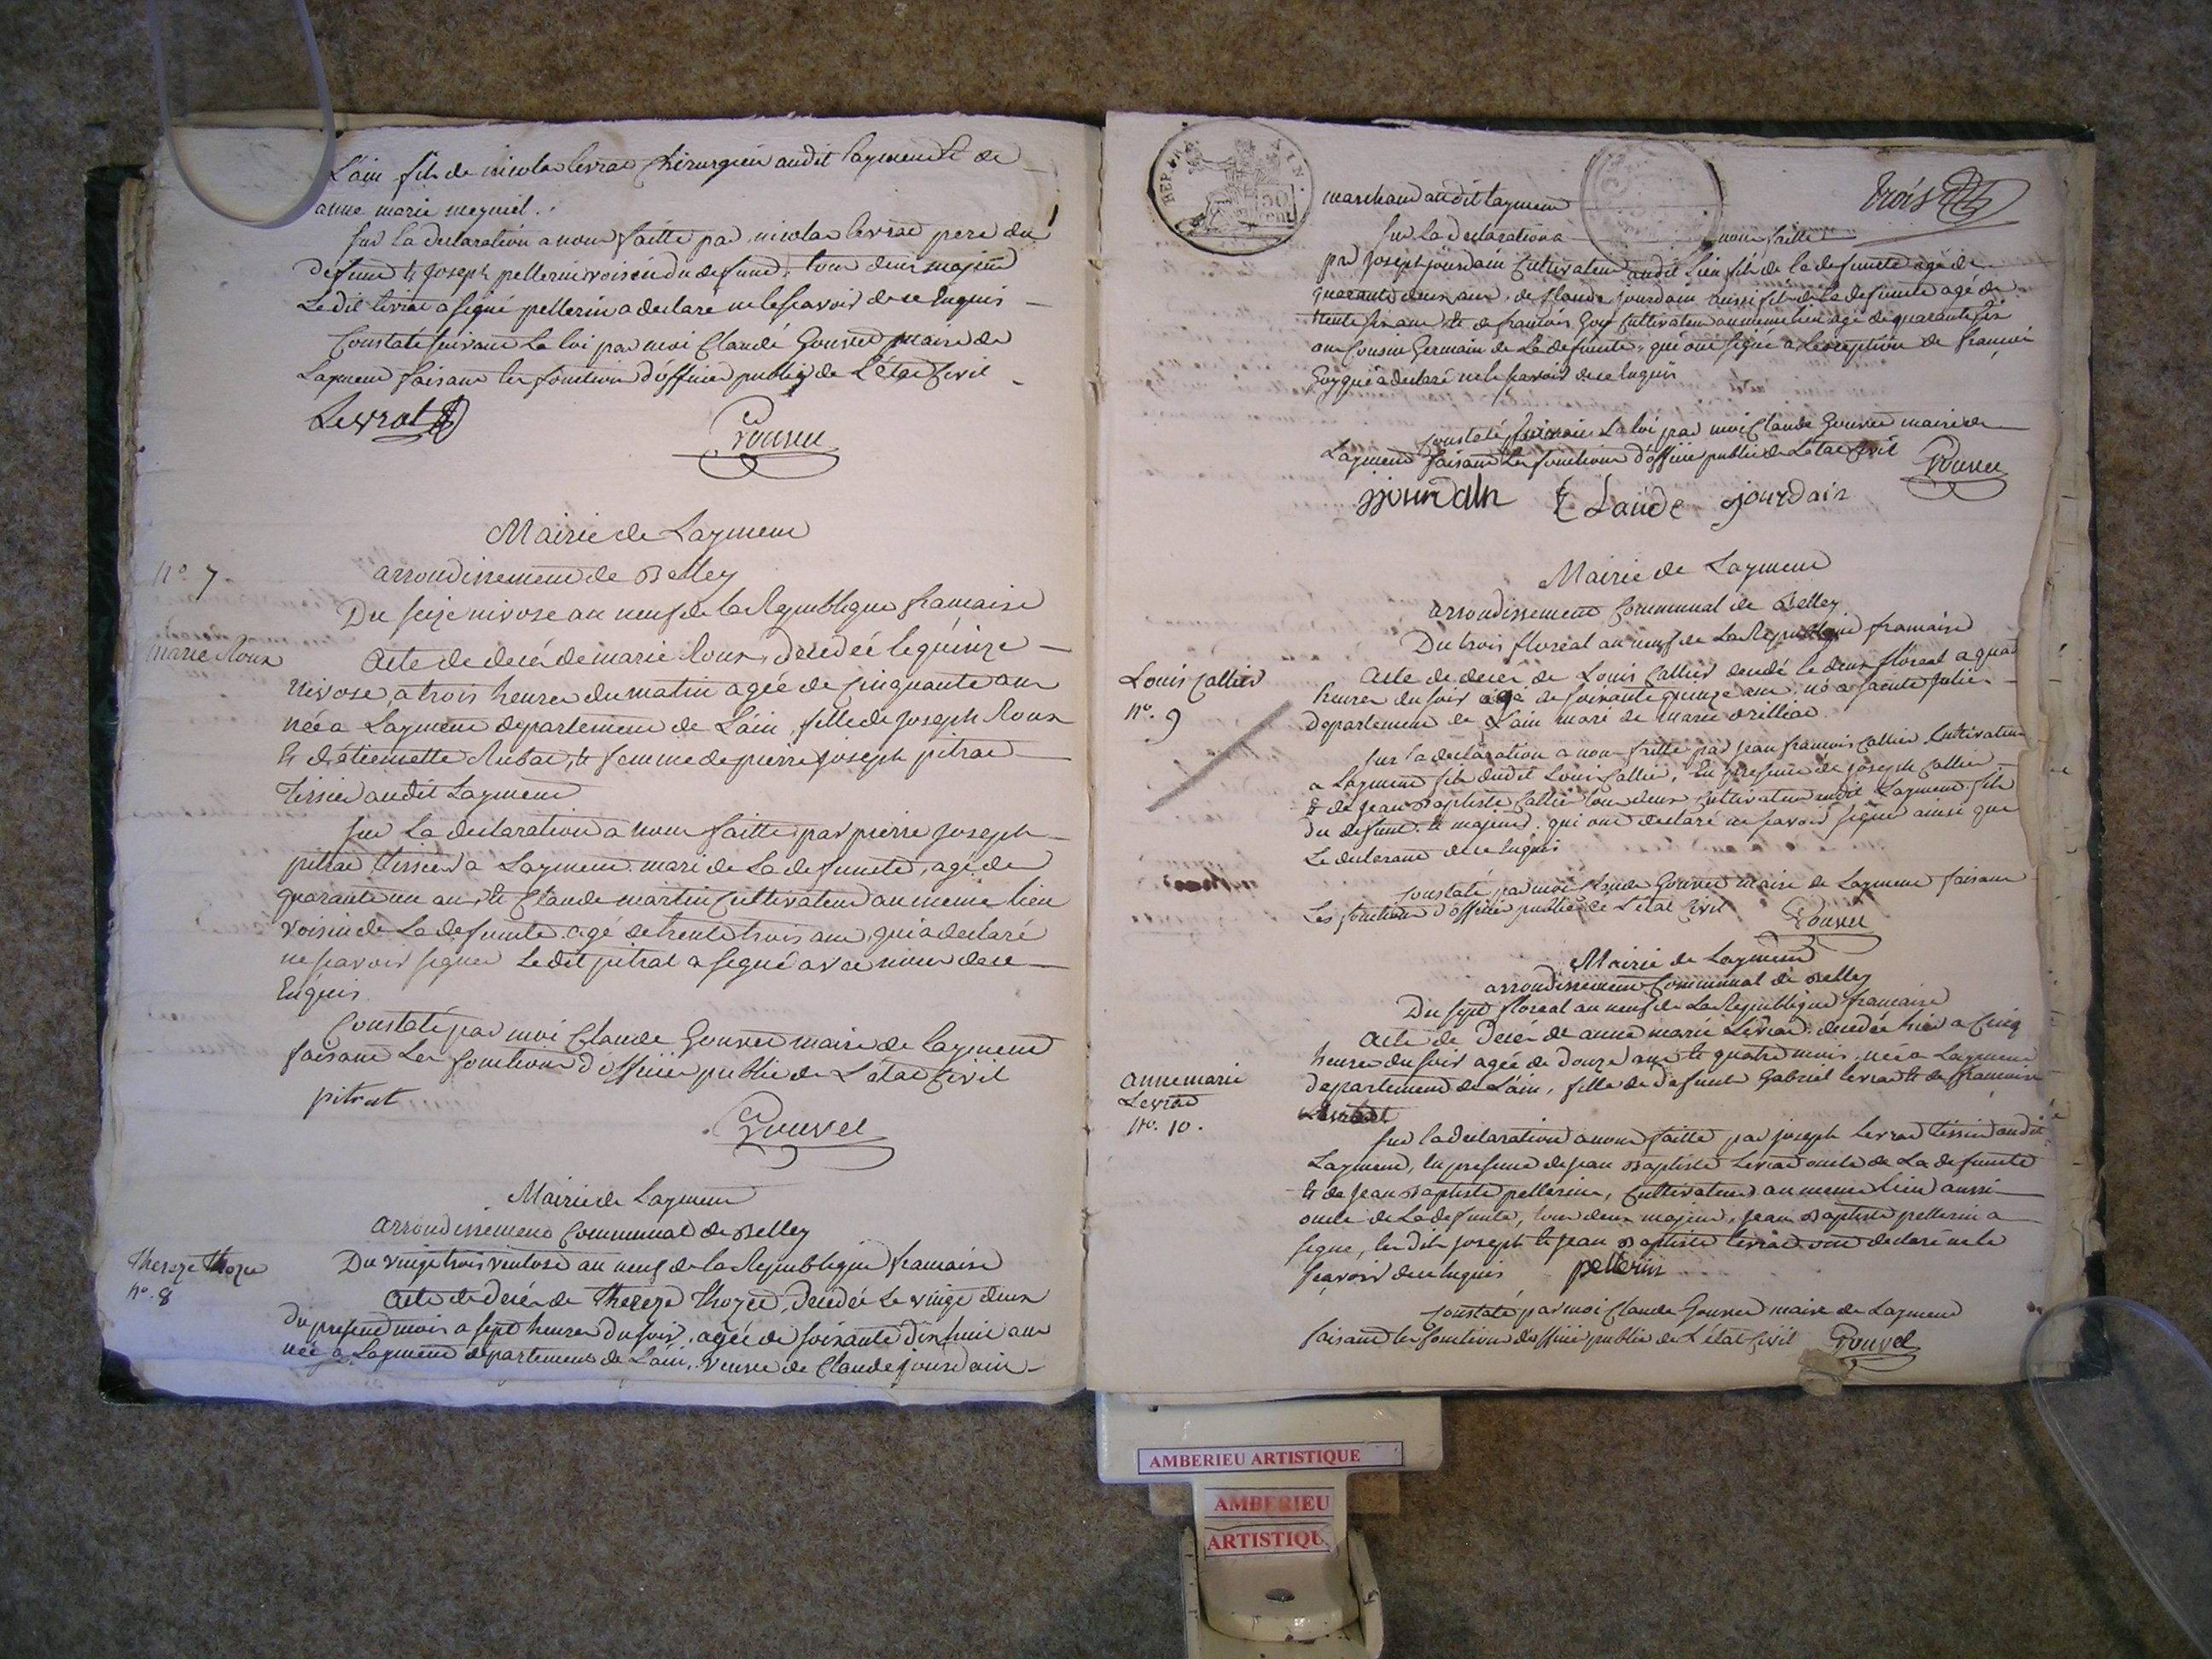 L'ain fils de nicolas levrat Chirurgien audit laymens et de
anne marie meyniel.
sur la declaration a nous faitte par nicolas levrat pere du
defunt et joseph pellerin voisin du defunt, tous deux majeurs
Ledit levrat a signé pellerin a declaré ne le scavoir de ce enquis
Constaté suivant la loi par moi Claude Gouvet maire de
Laymens faisant les fonctions d'officier public de L'état Civil
Levrat
Gouvet
Mairie de Laymens
arrondissement de Belley
n° 7
Du seize nivose an neuf de la Republique francaise
marie Roux
Acte de decés de marie Roux, decedée le quinze
nivose, a trois heures du matin agée de Cinquante ans
née a Laymens departement de L'ain, fille de joseph Roux
et d'étiennette Rubat, et femme de pierre joseph pitrat
tissier audit Laymens
sur La declaration a nous faitte par pierre joseph
pitrat tissier a Laymens mari de La defunte, agé de
quarante un ans et Claude martin Cultivateur au meme lieu
voisin de La defunte agé de trente trois ans, qui a declaré
ne scavoir signer Le dit pitrat a signé avec nous de ce
Enquis
Constaté par moi Claude Gouvet maire de laymens
faisant Les fonctions d'officier public de L'état Civil
pitrat
Gouvet
Mairie de Laymens
arrondissement Communal de Belley
Thereze Thozet
n°. 8
Du vingt trois ventose an neuf de la Republique francaise
Acte de decés de Thereze Thozet, decedée Le vingt deux
du present mois a sept heures du soir, agée de soixante dix huit ans
née a Laymens departement de L'ain, veuve de Claude jourdain
trois
marchand audit laymens
sur La declaration a nous faitte
par joseph jourdain Cultivateur audit Lieu fils de la defunte agé de
quarante deux ans, de Claude jourdain aussi fils de la defunte agé de
trente six ans et de francois Goy Cultivateur au meme lieu agé de quarante six
ans Cousin Germain de La defunte, qui ont signé a L'exception de francois
Goy qui a declaré ne le scavoir de ce Enquis
Constaté suivant La loi par moi Claude Gouvet maire de
Laymens faisant Les fonctions d'officier public de L'état Civil
Gouvet
jjourdain Claude jourdain
Mairie de Laymens
arrondissement Communal de Belley
Du trois floreal an neuf de La Republique francaise
Louis Callier
n°. 9
Acte de decés de Louis Callier decedé le deux floreal a quatre
heures du soir agé de soixante quinze ans, né a sainte julie
departement de L'ain mari de marie
sur la declaration a nous faitte par jean francois Callier Cultivateur
a Laymens fils dudit Louis Callier, En presence de joseph Callier
et de jean Baptiste Callier tous deux Cultivateurs audit Laymens fils
du defunt et majeurs, qui ont declaré ne scavoir signer ainsi que
Le declarant de ce Enquis
Constaté par moi Claude Gouvet maire de Laymens faisant
Les fonctions d'officier public de L'état Civil
Gouvet
Mairie de Laymens
arrondissement Communal de Belley
Du sept floreal an neuf de La Republique francaise
Acte de Decés de anne marie Levrat decedée hier a Cinq
heures du soir agée de douze ans et quatre mois, née a Laymens
anne marie
Levrat
n°. 10.
departement de L'ain, fille de defunt Gabriel levrat et de francoise
sur la declaration a nous faitte par joseph Levrat tissier audit
Laymens, En presence de jean Baptiste Levrat oncle de La defunte
et de jean Baptiste pellerin, Cultivateur au meme lieu aussi
oncle de La defunte, tous deux majeurs, jean Baptiste pellerin a
signé, les dits joseph et jean Baptiste levrat ont declaré ne le
scavoir de ce Enquis pellerin
Constaté par moi Claude Gouvet maire de Laymens
faisant les fonctions d'officier public de L'état Civil Gouvet
AMBERIEU ARTISTIQUE
AMBERIEU
ARTISTIQU